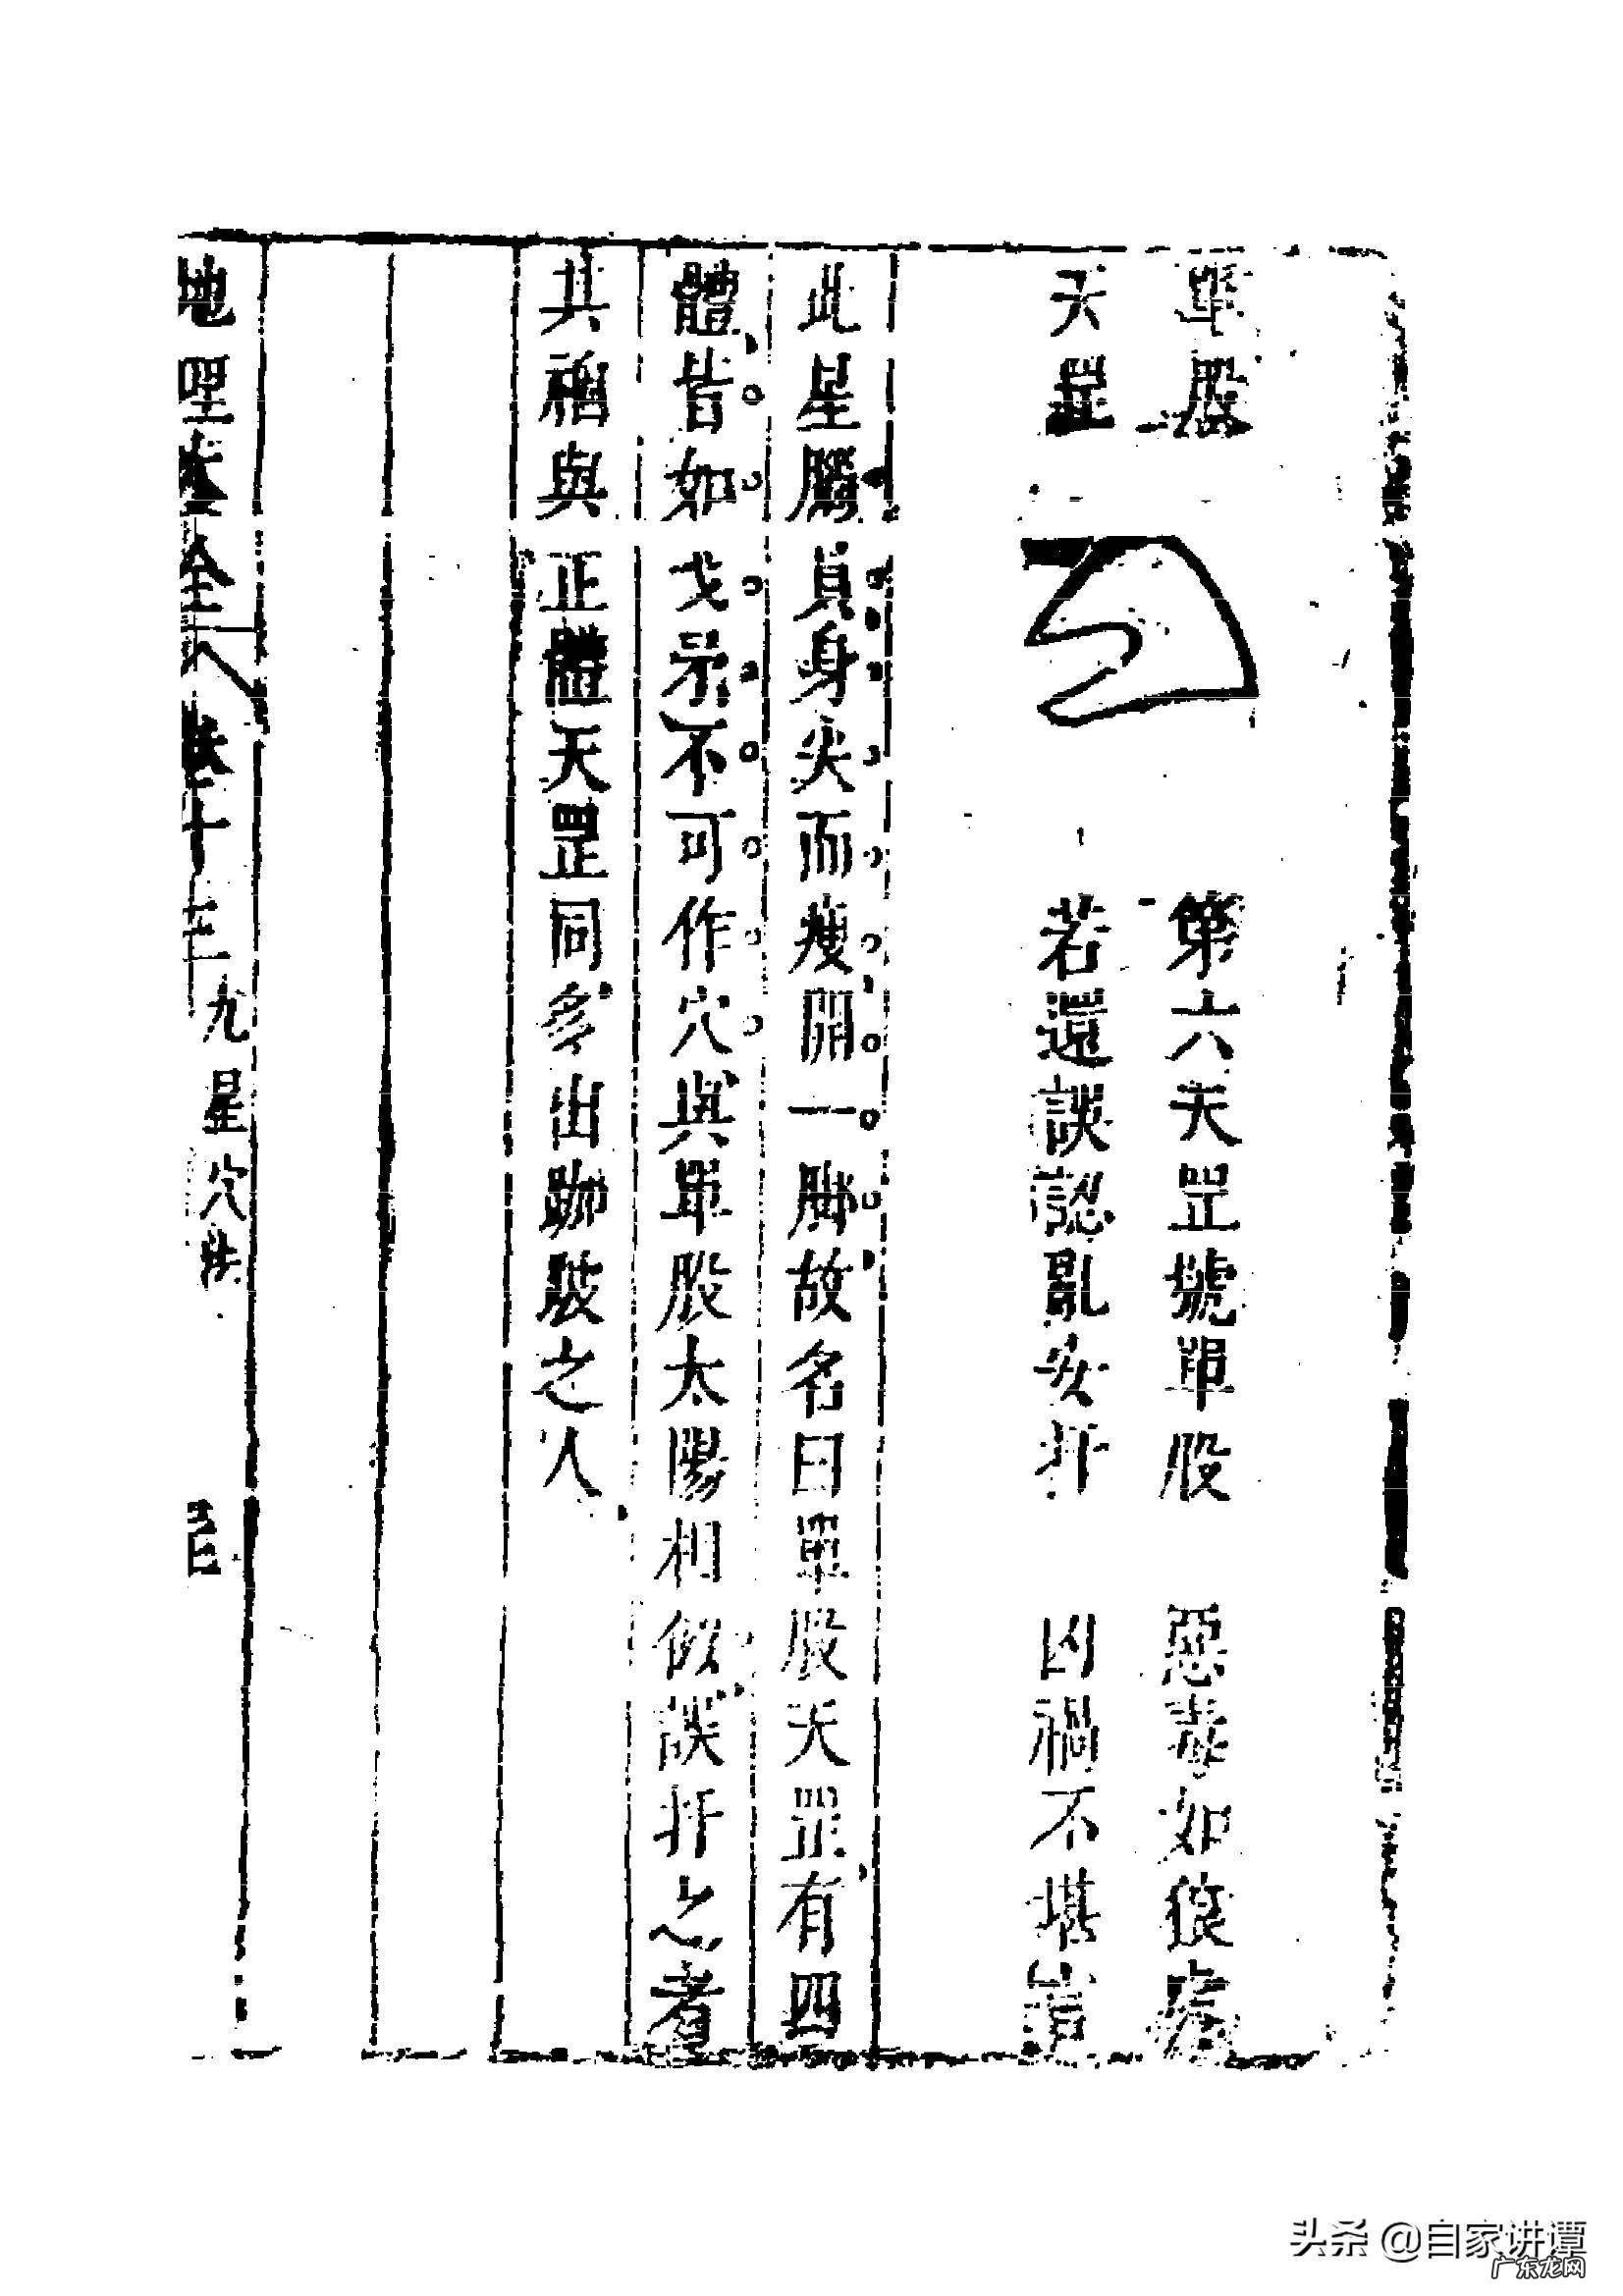 單股
天罡
第六天罡號單股　惡毒如狼虎
若還誤認亂安扦　凶禍不堪言
此星腦員身尖而瘦開一脚故名曰單股天罡有四
體皆如戈矛不可作穴與單股太陽相似誤扦之者
其禍與正體天罡同多出跏跛之人
地理大全 卷十三 九星穴法
头条 @自家讲谭
广东龙网